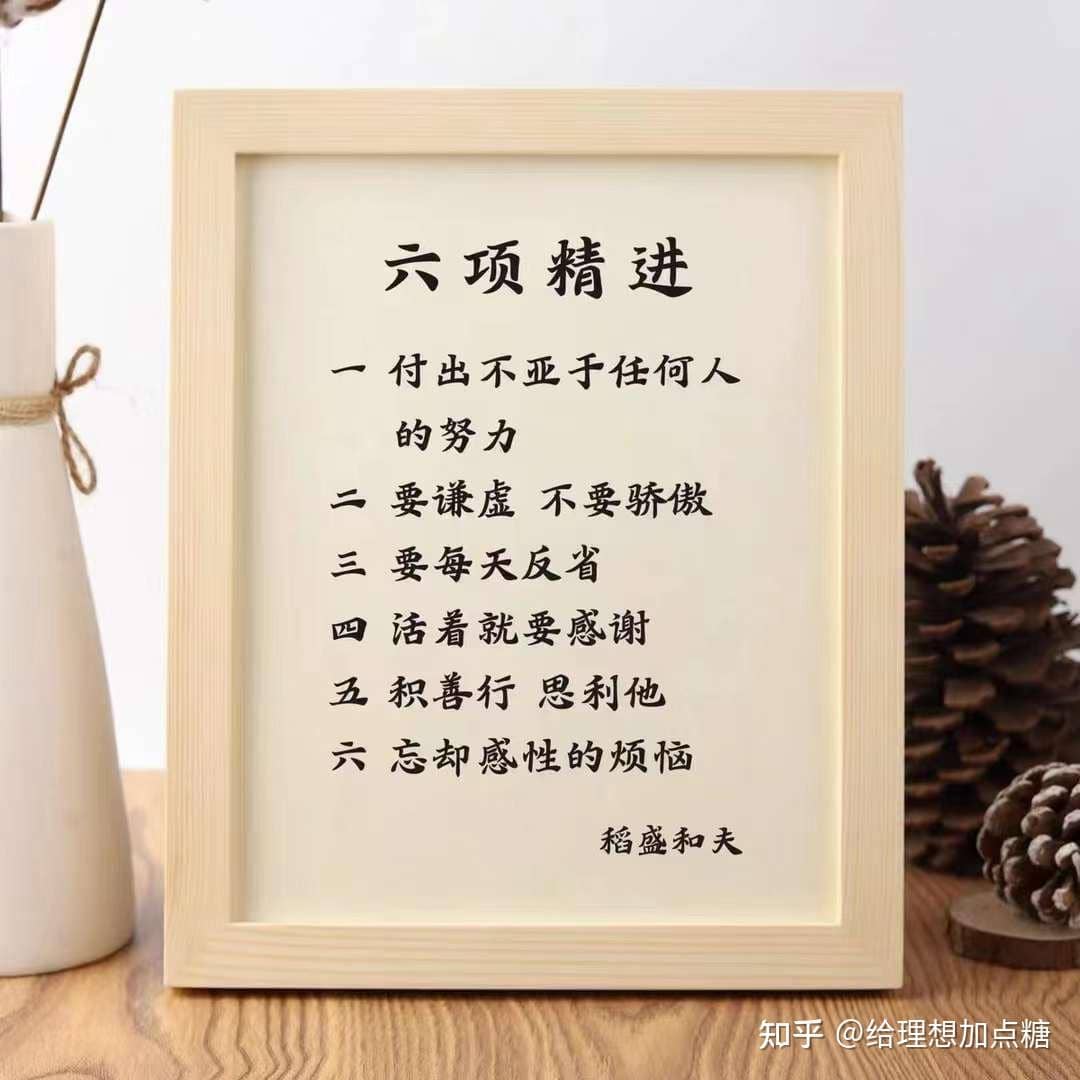 六项精进
一 付出不亚于任何人
的努力
二 要谦虚 不要骄傲
三 要每天反省
四 活着就要感谢
五 积善行 思利他
六 忘却感性的烦恼
稻盛和夫
知乎 @给理想加点糖